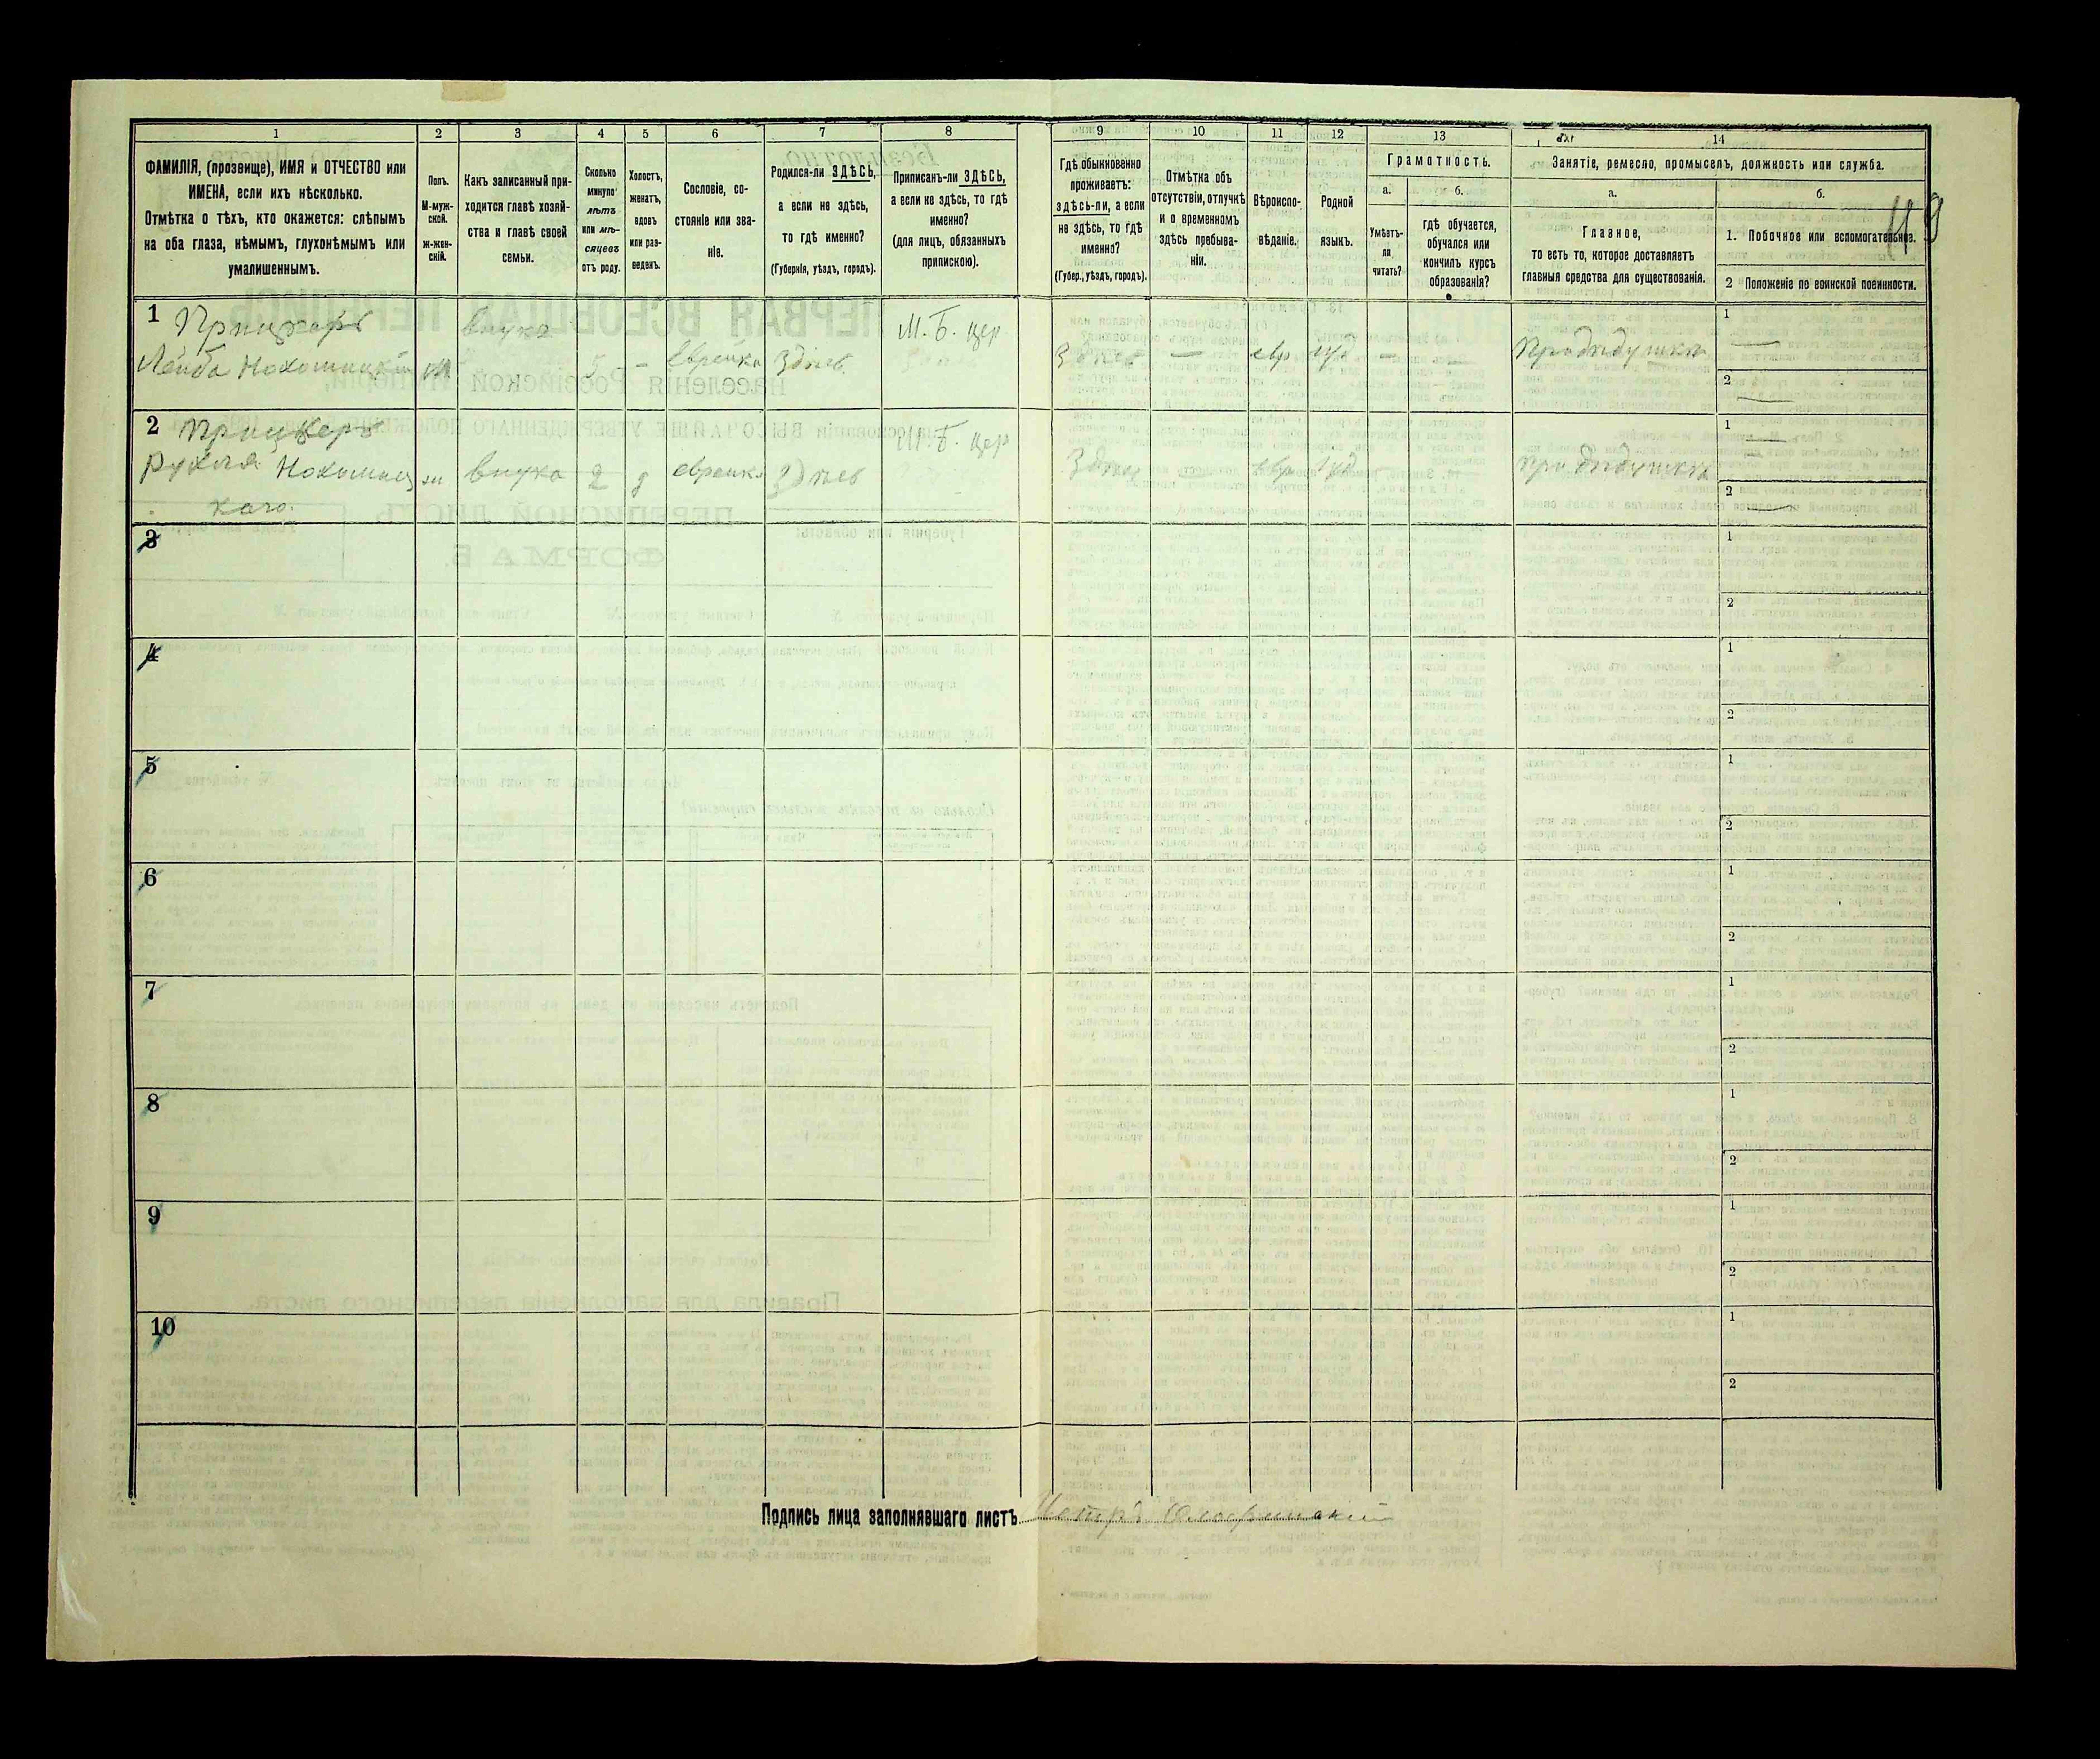 1 2 3 4 5 6 7 8 9 10 11 12 13 14
ФАМИЛІЯ, (прозвище), ИМЯ и ОТЧЕСТВО или
ИМЕНА, если ихъ нѣсколько.
Отмѣтка о тѣхъ, кто окажется: слѣпымъ
на оба глаза, нѣмымъ, глухонѣмымъ или
умалишеннымъ.
Полъ.
М-муж-
ской.
Ж-жен-
скій.
Какъ записанный при-
ходится главѣ хозяй-
ства и главѣ своей
семьи.
Сколько
минуло
лѣтъ
или мѣ-
сяцевъ
отъ роду.
Холостъ,
женатъ,
вдовъ
или раз-
веденъ.
Сословіе, со-
стояніе или зва-
ніе.
Родился-ли ЗДѢСЬ,
а если не здѣсь,
то гдѣ именно?
(Губернія, уѣздъ, городъ).
Приписанъ-ли ЗДѢСЬ,
а если не здѣсь, то гдѣ
именно?
(для лицъ, обязанныхъ
припискою).
Гдѣ обыкновенно
проживаетъ:
здѣсь-ли, а если
не здѣсь, то гдѣ
именно?
(Губер., уѣздъ, городъ).
Отмѣтка объ
отсутствіи, отлучкѣ
и о временномъ
здѣсь пребыва-
ніи.
Вѣроиспо-
вѣданіе.
Родной
языкъ.
Грамотность.
а.
Умѣетъ-
ли
читать?
б.
гдѣ обучается,
обучался или
кончилъ курсъ
образованія?
Занятіе, ремесло, промыселъ, должность или служба.
а.
Главное,
то есть то, которое доставляетъ
главныя средства для существованія.
б.
1. Побочное или вспомогательное.
2 Положеніе по воинской повинности.
1 Прицкеръ внука М.-Б. цер
Лейба 5 - еврейка Здѣсь. Здѣсь — евр — При дѣдушкѣ
1
2
2 Прицкеръ
Рухля внука 2 еврейка Здѣсь — евр При дѣдушкѣ
каго.
1
2
3
1
2
4
1
2
5
1
2
6
1
2
7
1
2
8
1
2
9
1
2
10
1
2
Подпись лица заполнявшаго листъ Петръ